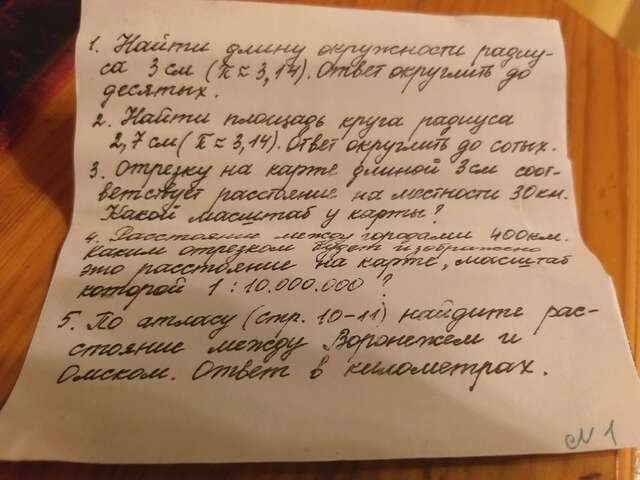 1. Найти длину окружности радиу-
са 3 см (π ≈ 3,14). Ответ округлить до
десятых.
2. Найти площадь круга радиуса
2,7 см (π ≈ 3,14). Ответ округлить до сотых.
3. Отрезку на карте длиной 3 см соот-
ветствует расстояние на местности 30 км.
Какой масштаб у карты?
4. Расстояние между городами 400 км.
Каким отрезком будет изображено
это расстояние на карте, масштаб
которой 1 : 10.000.000 ?
5. По атласу (стр. 10-11) найдите рас-
стояние между Воронежем и
Омском. Ответ в километрах.
N 1